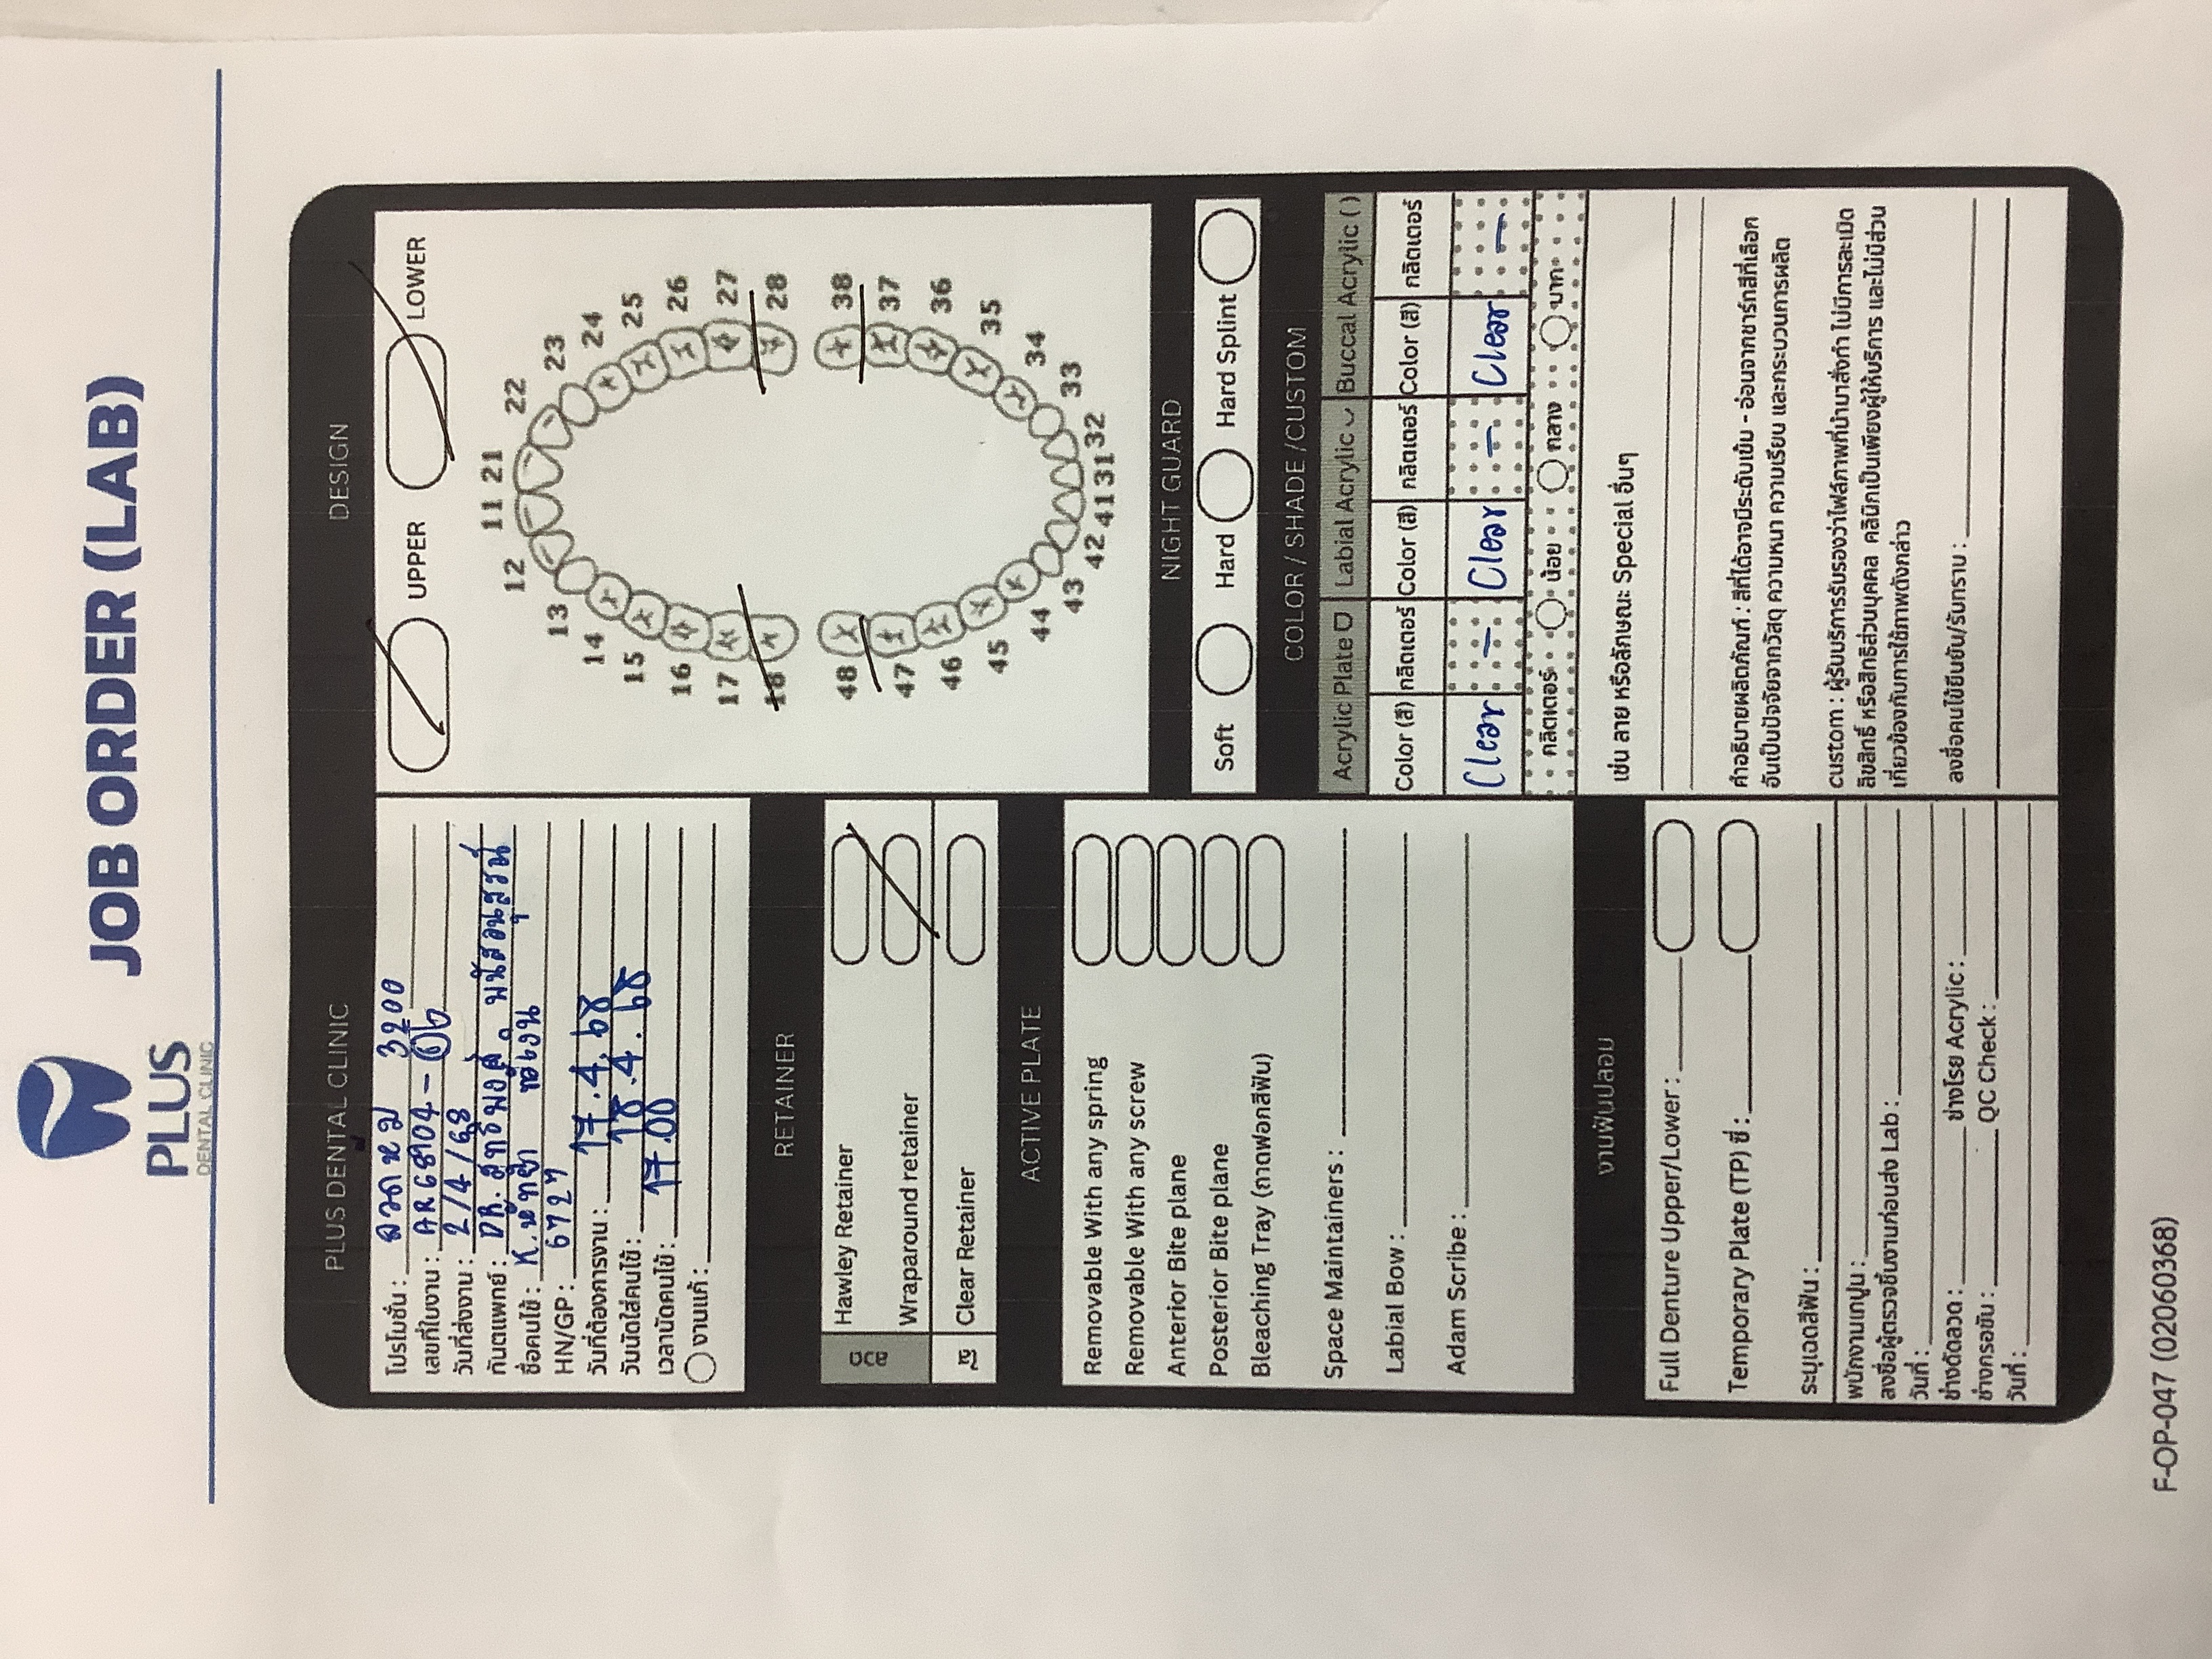 PLUS
DENTAL CLINIC
JOB ORDER (LAB)
PLUS DENTAL CLINIC
โปรโมชั่น : ลวด 3200
เลขที่ใบงาน : AR68904 - 06
วันที่ส่งงาน : 2/4/68
ทันตแพทย์ : DR. สุทธิพงศ์
ชื่อคนไข้ : K.
HN/GP : 6727
วันที่ต้องการงาน : 17.4.68
วันนัดใส่คนไข้ : 18.4.68
เวลานัดคนไข้ : 17.00
งานแก้ :
RETAINER
ลวด
Hawley Retainer
Wraparound retainer
ใส
Clear Retainer
ACTIVE PLATE
Removable With any spring
Removable With any screw
Anterior Bite plane
Posterior Bite plane
Bleaching Tray (ถาดฟอกสีฟัน)
Space Maintainers :
Labial Bow :
Adam Scribe :
งานฟันปลอม
Full Denture Upper/Lower :
Temporary Plate (TP) ซี่ :
ระบุเฉดสีฟัน :
พนักงานเทปูน :
ลงชื่อผู้ตรวจชิ้นงานก่อนส่ง Lab :
วันที่ :
ช่างดัดลวด : ช่างโรย Acrylic :
ช่างกรอขัน : QC Check :
วันที่ :
DESIGN
UPPER LOWER
11 21
12 22
13 23
14 24
15 25
16 26
17 27
18 28
48 38
47 37
46 36
45 35
44 34
43 33
42 41 31 32
NIGHT GUARD
Soft Hard Hard Splint
COLOR / SHADE /CUSTOM
Acrylic Plate Labial Acrylic Buccal Acrylic ( )
Color (สี) กลิตเตอร์ Color (สี) กลิตเตอร์ Color (สี) กลิตเตอร์
Clear - Clear - Clear -
กลิตเตอร์ น้อย กลาง มาก
เช่น ลาย หรือลักษณะ Special อื่นๆ
คำอธิบายผลิตภัณฑ์ : สีที่ได้อาจมีระดับเข้ม - อ่อนจากชาร์ทสีที่เลือก
อันเป็นปัจจัยจากวัสดุ ความหนา ความเรียบ และกระบวนการผลิต
custom : ผู้รับบริการรับรองว่าไฟล์ภาพที่นำมาสั่งทำ ไม่มีการละเมิด
ลิขสิทธิ์ หรือสิทธิส่วนบุคคล คลินิกเป็นเพียงผู้ให้บริการ และไม่มีส่วน
เกี่ยวข้องกับการใช้ภาพดังกล่าว
ลงชื่อคนไข้ยืนยัน/รับทราบ :
F-OP-047 (02060368)